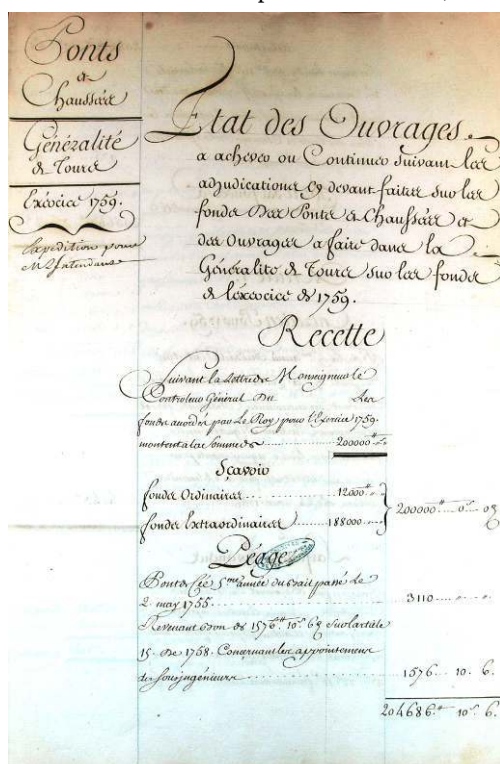 Ponts
et
Chaussées
Généralité
de Tours
Exercice 1759.
Expedition pour
Mr. l'intendant
Etat des Ouvrages
a achever ou Continuer Suivant les
adjudications cy devant faittes sur les
fonds Des Ponts et Chaussées et
des Ouvrages a faire dans la
Généralité de Tours sur les fonds
de l'éxercice de 1759.
Recette
Suivant la Lettre de Monseigneur le
Controleur Général du Les
fonds accordés par Le Roy pour l'Exercice 1759.
montent a la Somme de 200000# "
Sçavoir
fonds Ordinaires 12000# "
fonds Extraordinaires 188000 " } 200000# 0s 0d
Péages
Ponts de Cé 5me année du bail passé Le
2. may 1755. 3110 " "
Revenant bon de 1576# 10s 6d Sur l'article
15. de 1758. Concernant les appointemens
des sous ingénieurs 1576. 10. 6.
204686# 10s 6.